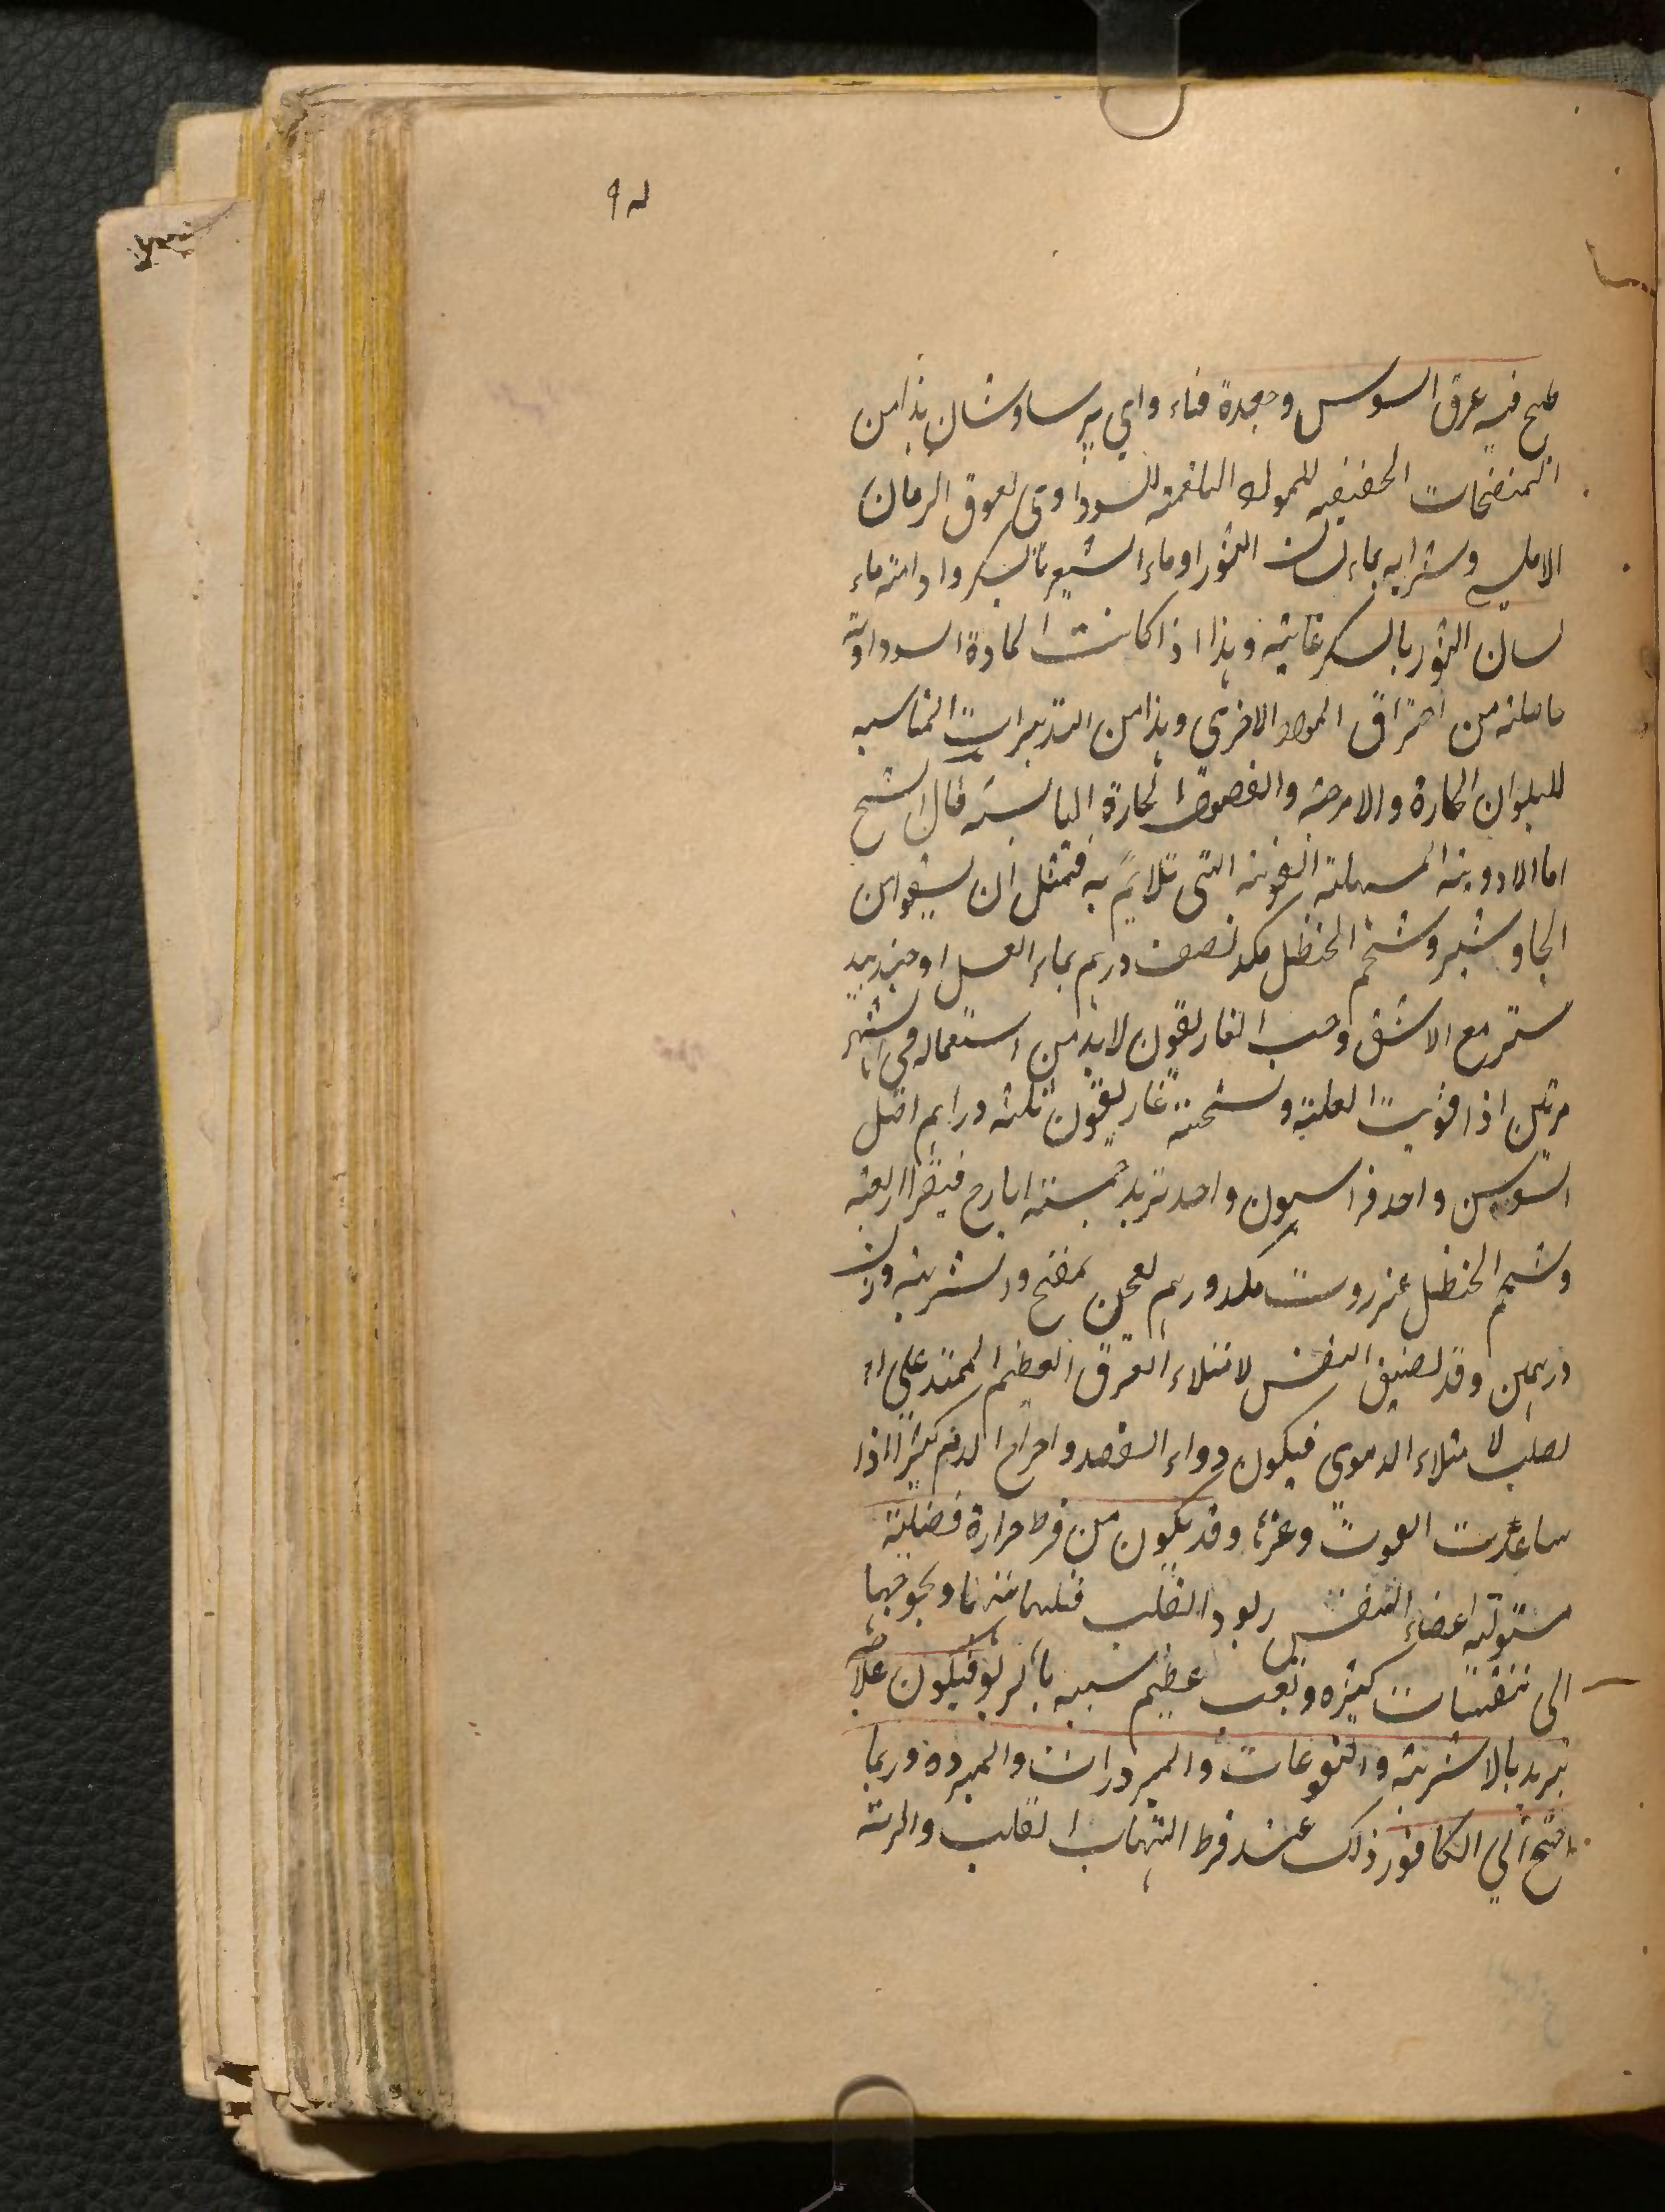 طبخ فيه عرق السوس وجعدة قناء واي پرساوشان هذا من
المنضجات الخفيفه للمواد البلغمية للسوداوى لعوق الرمان
الامليسي وشرابه بماء لسان الثور او ماء الشعير بالسكر وادامته ماء
لسان الثور بالسكر غايته وهذا اذا كانت المادة السوداوية
حاصلة من احتراق المواد الاخرى وهذا من التدبيرات المناسبه
للبلدان الحارة والامزجة والفصول الحارة اليابسة قال الشيخ
اما الادوية المسهلة القوية التى تلايم به فتمثل ان يسقوا من
الجاوشير وشحم الحنظل مكد نصف درهم بماء العسل او جندبيد
ستر مع الاشق وحب الغاريقون لابد من استعماله فى الشهر
مرتين اذا قويت العلة ونسخته غاريقون ثلثة دراهم اصل
السوسن واحد فراسيون واحد تربد خمسة ايارج فيقرا اربعة
وشحم الحنظل عنزروت مكد درهم يعجن بمفختج والشربة وزن
درهمين وقد يضيق النفس لامتلاء العرق العظيم الممتد على ال
لصلب لامتلاء الدموى فيكون دواء الفصد واخراج الدم كثيرًا اذا
ساعدت القوت وغيرها وقد يكون من فرط حرارة فضلية
مستولية اعضاء النفس ربو والقلب فتلهبانها ويحوجها
الى تنفسات كثيره وتعب عظيم شبيه بالربو فيكون علاجه
تبريد بالاشربة والنقوعات والمبردات والمبرده وربما
احتج الي الكافور ذلك عند فرط التهاب القلب والرئة